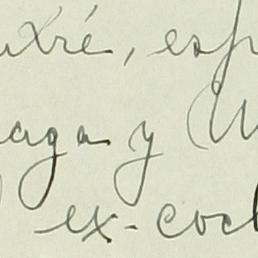 uxré, esp
aga y (U
ex-coch